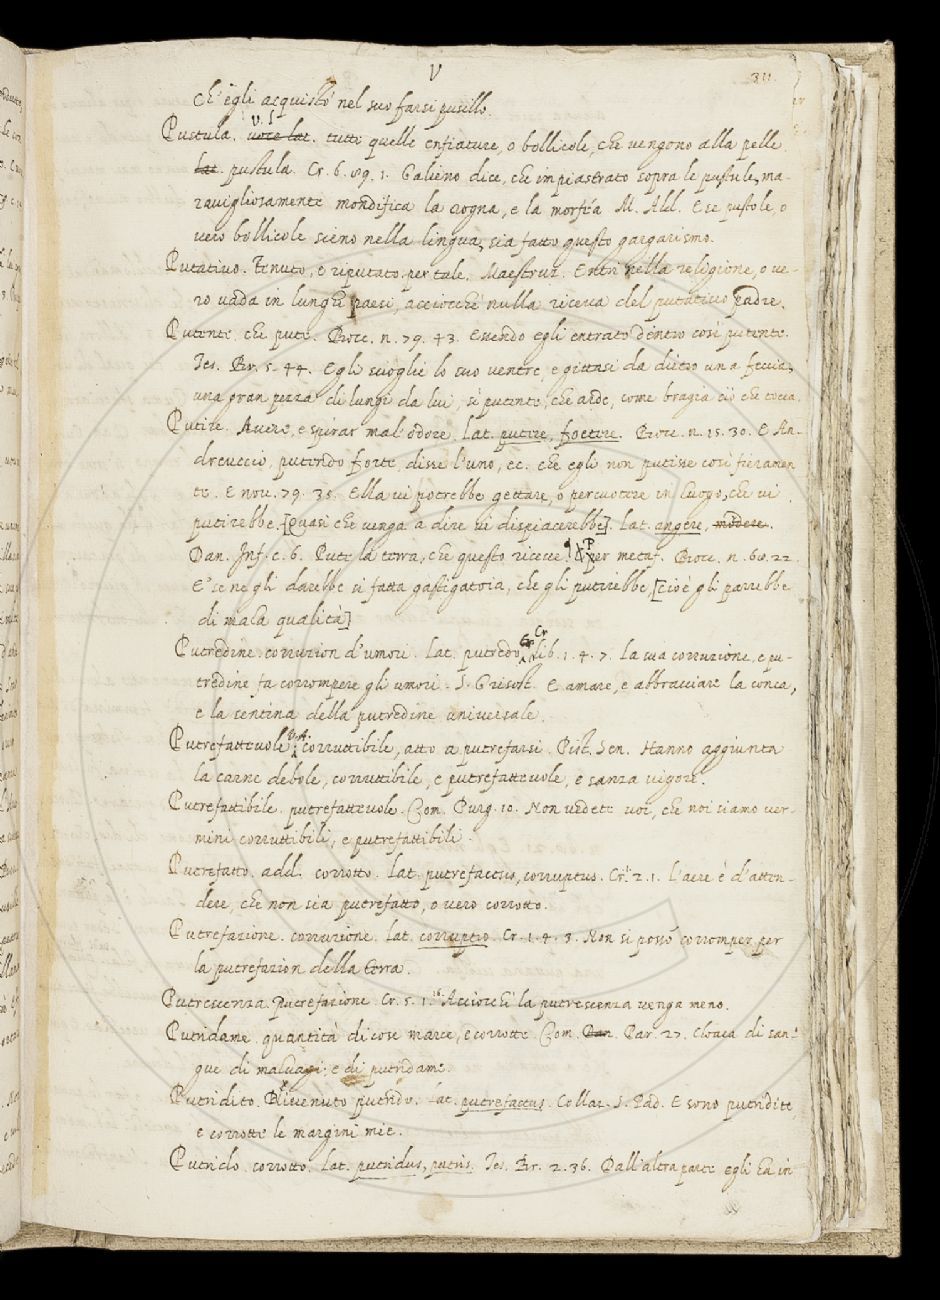 V
311.
Ch'egli acquistò nel suo farsi pusillo.
Pustula. V. L. voce lat. tutte quelle enfiature, o bollicole, che vengono alla pelle
lat. pustula. Cr. 6. 89. 1. Galieno dice, che impiastrato sopra le pustule, ma-
ravigliosamente mondifica la rogna, e la morféa M. Ald. E se pustole, o
vero bollicole sieno nella lingua, sia fatto questo gargarismo.
Putativo. Tenuto, e riputato per tale. Maestruz. Entri nella religione, o ve-
ro vada in lunghi paesi, acciocchè nulla riceva del putativo padre.
Putente. che pute. Bocc. n. 79. 43. Essendo egli entrato dentro così putente.
Tes. Br. 5. 44. Egli scioglie lo suo ventre, e gittasi da dietro una feccia,
una gran pezza di lungi da lui, sì putente, che arde, come bragia ciò che tocca.
Putire. Avere, e spirar mal odore. lat. putire, foetere. Bocc. n. 15. 30. E An-
dreuccio, putendo forte, disse l'uno, ec. che egli non putisse così fieramen
te. E nov. 79. 35. Ella vi potrebbe gettare, o percuotere in luogo, che vi
putirebbe. [Quasi che venga a dire vi dispiacerebbe]. lat. angere,
Dan. Inf. c. 6. Pute la terra, che questo riceve. Per metaf. Bocc. n. 68. 22
E' se ne gli darebbe sì fatta gastigatoia, che gli putirebbe, [cioè gli parrebbe
di mala qualità]
Putredine. corruzion d'umori. Lat. putredo, Cr. lib. 1. 4. 7. La sua corruzione, e pu-
tredine fa corrompere gli umori. S. Grisost. E amare, e abbracciare la conca,
e la sentina della putredine universale.
Putrefattevole V. A. corruttibile, atto a putrefarsi. Pist. Sen. Hanno aggiunta
la carne debole, corruttibile, e putrefattevole, e sanza vigore.
Putrefattibile. putrefattevole. Com. Purg. 10. Non vedete voi, che noi siamo ver-
mini corruttibili, e putrefattibili.
Putrefatto. add. corrotto. lat. putrefactus, corruptus. Cr. 2. 1. L'aere è d'atten-
dere, che non sia putrefatto, o vero corrotto.
Putrefazione. corruzione. lat. corruptio. Cr. 1. 4. 3. Non si possò corromper per
la putrefazion della terra.
Putrescenza. Putrefazione Cr. 5. 1. 16. Acciocchè la putrescenza venga meno.
Putridame. quantità di cose marce, e corrotte. Com. Dan. Par. 27. Cloaca di san-
gue di malvagi, e di putridame.
Putridito. Divenuto putrido. Lat. putrefactus. Collaz. S. Pad. E sono putridite
e corrotte le margini mie.
Putrido. corrotto. lat. putridus, putris. Tes. Br. 2. 36. Dall'altra parte egli ha in